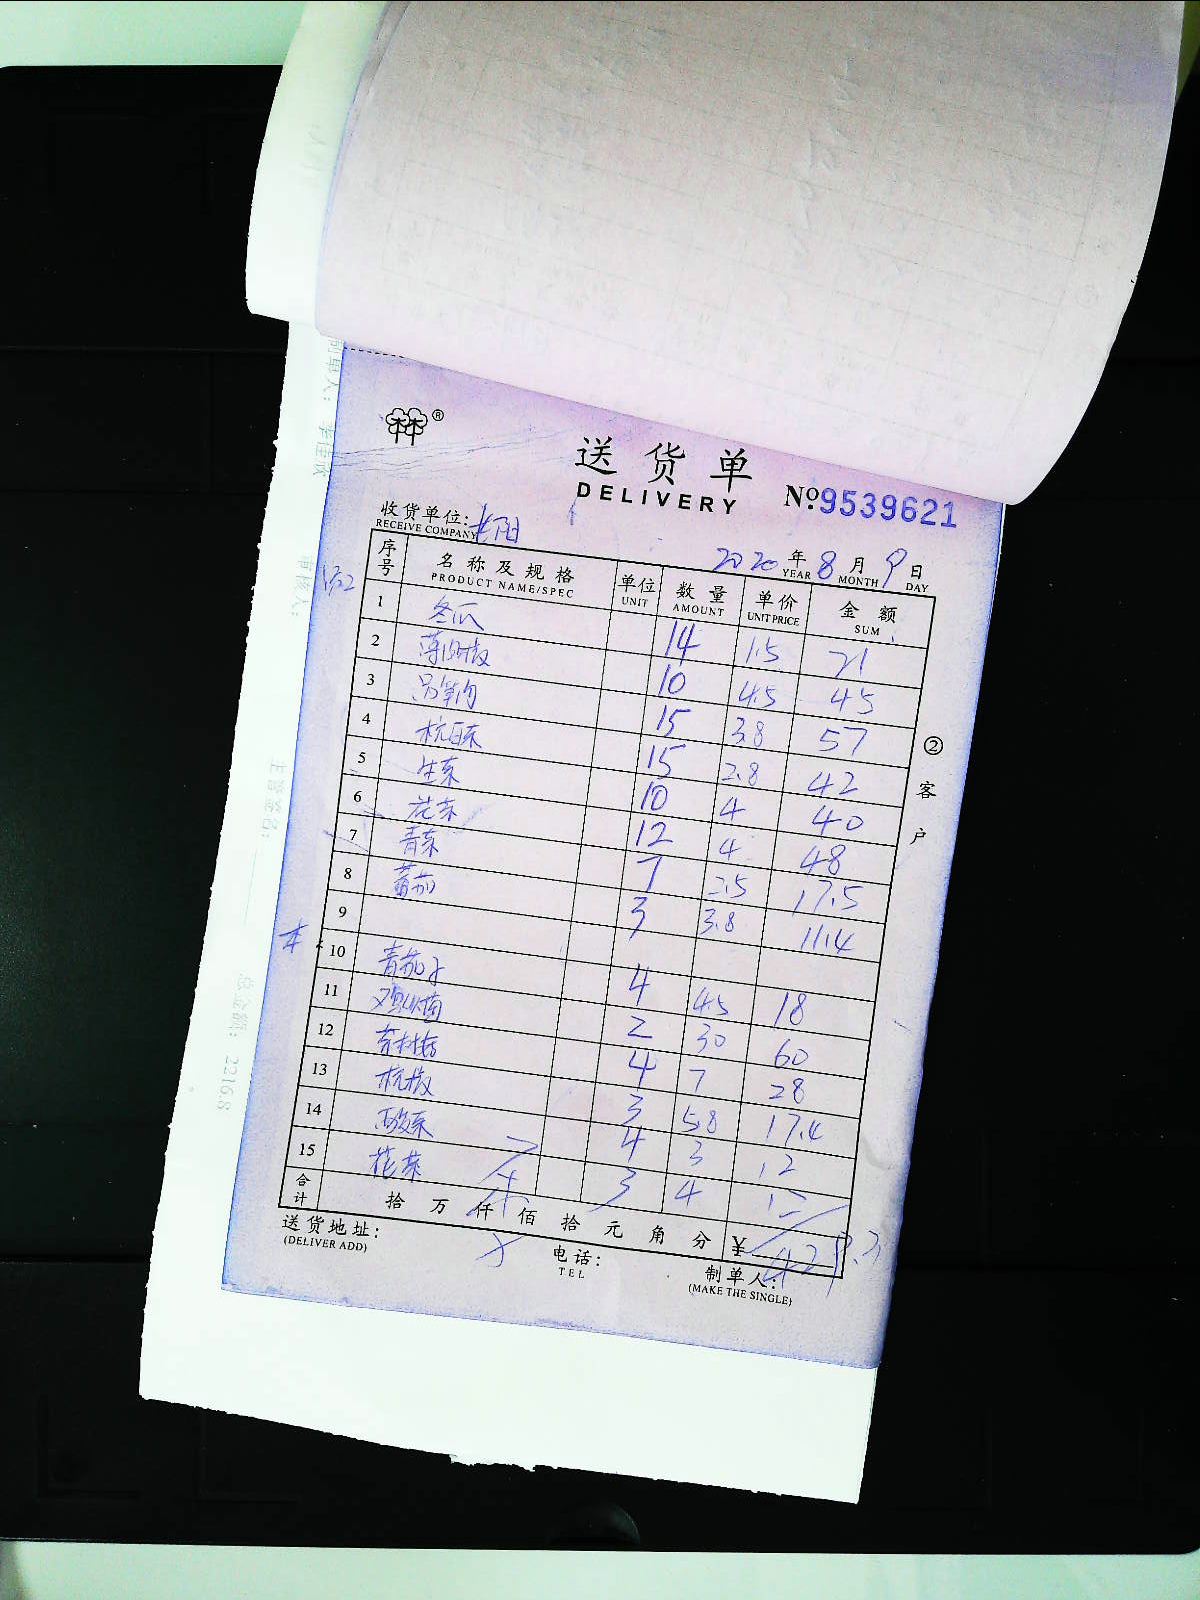 送货单
DELIVERY
№9539621
收货单位:
RECEIVE COMPANY
2020 年 8 月 9 日
YEAR MONTH DAY
序号 名称及规格 单位 数量 单价 金额
PRODUCT NAME/SPEC UNIT AMOUNT UNIT PRICE SUM
1 冬瓜 14 1.5 21
2 10 4.5 45
3 15 3.8 57
4 15 2.8 42
5 生菜 10 4 40
6 花菜 12 4 48
7 青菜 7 2.5 17.5
8 蕃茄 3 3.8 11.4
9
10 青茄子 4 4.5 18
11 2 30 60
12 茶树菇 4 7 28
13 杭椒 3 5.8 17.4
14 4 3 12
15 花菜 3 4 12
合计 拾 万 仟 佰 拾 元 角 分 ¥ 429.3
送货地址:
(DELIVER ADD)
电话:
TEL
制单人:
(MAKE THE SINGLE)
②客户
审核人:
总金额: 2216.8